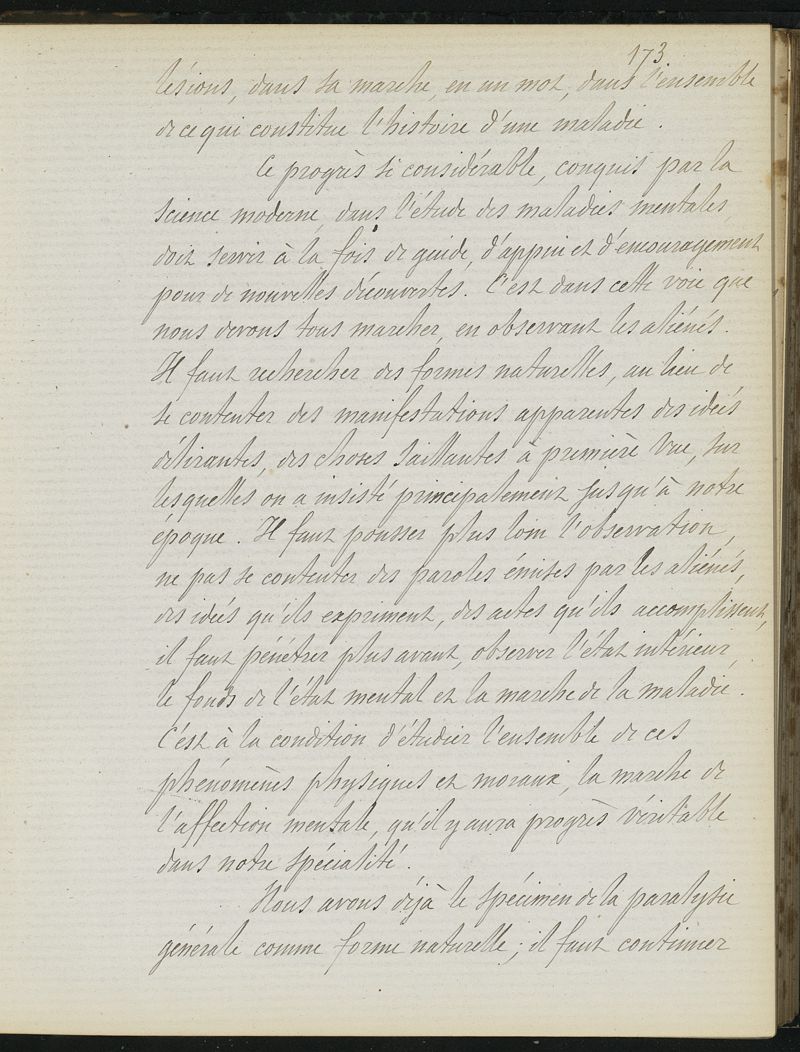 173
lésions, dans sa marche, en un mot, dans l'ensemble
de ce qui constitue l'histoire d'une maladie.
Ce progrès si considérable, conquis par la
science moderne, dans l'étude des maladies mentales,
doit servir à la fois de guide, d'appui et d'encouragement
pour de nouvelles découvertes. C'est dans cette voie que
nous devons tous marcher, en observant les aliénés.
Il faut rechercher des formes naturelles, au lieu de
se contenter des manifestations apparentes des idées
délirantes, des choses saillantes à première vue, sur
lesquelles on a insisté principalement jusqu'à notre
époque. Il faut pousser plus loin l'observation,
ne pas se contenter des paroles émises par les aliénés,
des idées qu'ils expriment, des actes qu'ils accomplissent,
il faut pénétrer plus avant, observer l'état intérieur,
le fonds de l'état mental et la marche de la maladie.
C'est à la condition d'étudier l'ensemble de ces
phénomènes physiques et moraux, la marche de
l'affection mentale, qu'il y aura progrès véritable
dans notre spécialité.
Nous avons déjà le spécimen de la paralysie
générale comme forme naturelle; il faut continuer